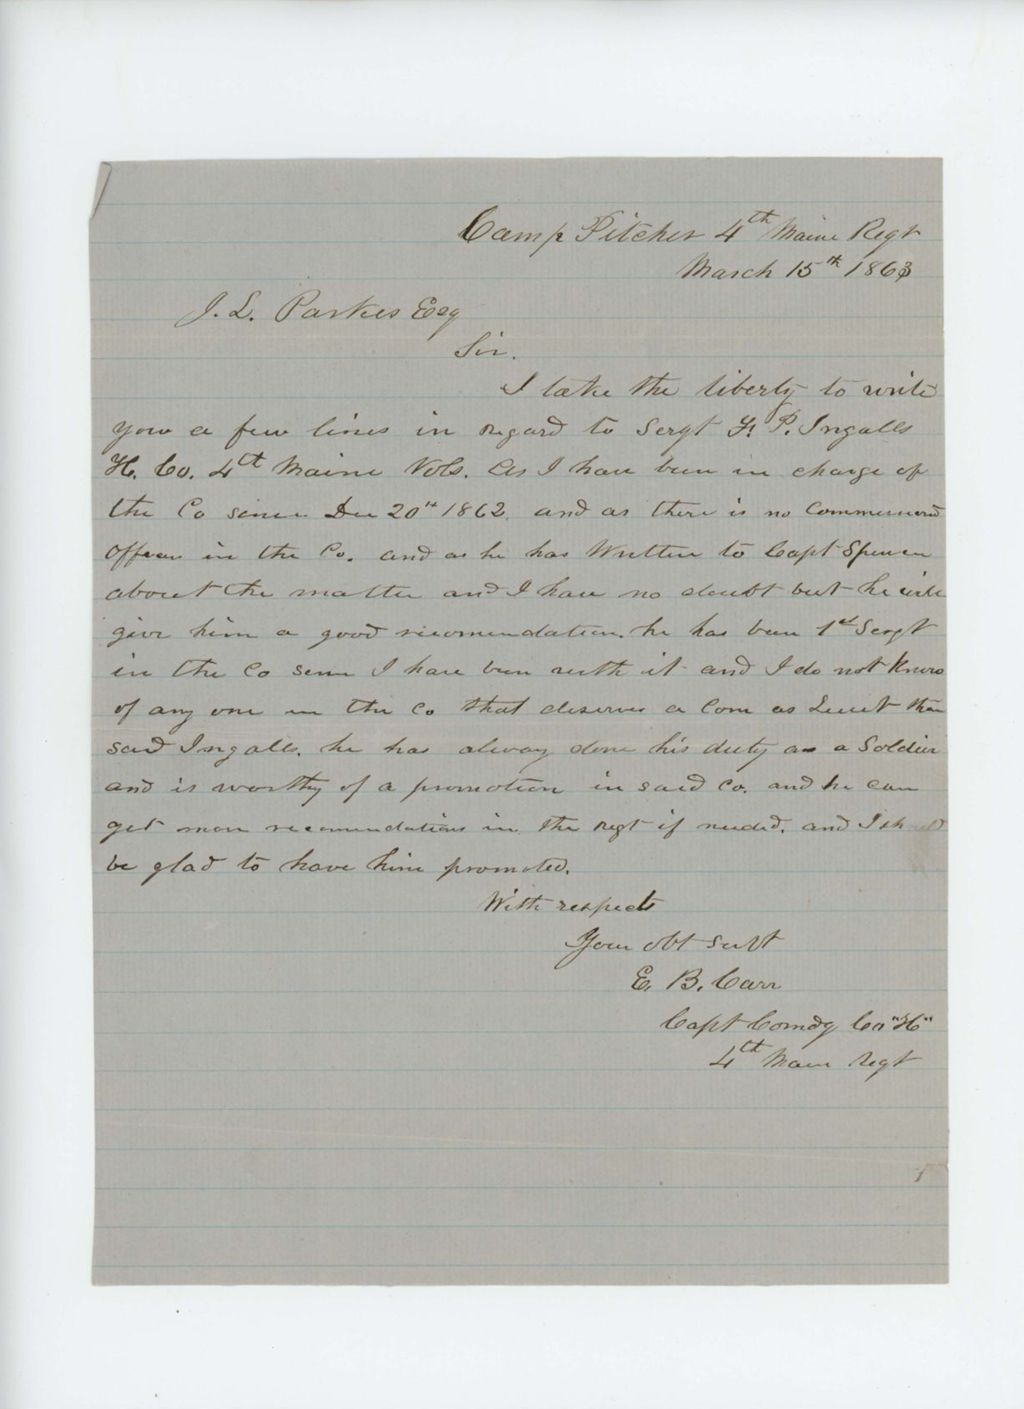 Camp Pitcher 4th Maine Regt
March 15th 1863
J. L. Parkes Esq
Sir.
I take the liberty to write
you a few lines in regard to Sergt F. P. Ingalls
H. Co. 4th Maine Vols. As I have been in charge of
the Co since Dec 20th 1862. and as there is no Commissioned
Officer in the Co. and as he has Written to Capt Spencer
about the matter and I have no doubt but he will
give him a good recomendation. he has been 1st Sergt
in the Co since I have been with it and I do not Know
of any one in the Co that deserves a Com as Lieut than
said Ingalls. he has alway done his duty as a Soldier
and is worthy of a promotion in said Co. and he can
get more recomendations in the Regt if needed. and I should
be glad to have him promoted.
With respects
Your obt Servt
E. B. Carr
Capt Comdg Co "H"
4th Maine Regt